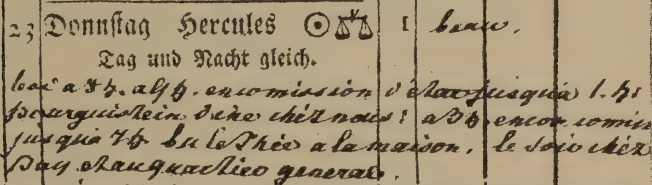 23 Donnstag Hercules ☉ ♎ 1 beau.
Tag und Nacht gleich.
a 8 h. a 9 h. en comission d'état jusqu'à 1. h:
bourguistein dine chéz nous: a 3 h. encor comis
jusqu'a 7 h bu le Thée a la maison. le soir chéz
Day et au quartier general.